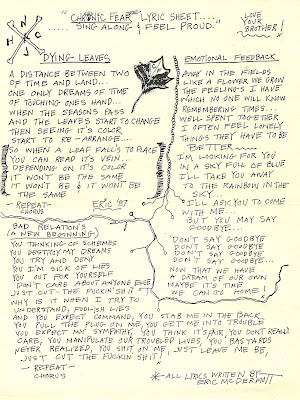 "CHRONIC FEAR" LYRIC SHEET....
SING ALONG & FEEL PROUD
LOVE
YOUR
BROTHER!
N
Y
H
C
DYING LEAVES
A DISTANCE BETWEEN TWO
OF TIME AND LAND...
ONE ONLY DREAMS OF TIME
OF TOUCHING ONES HAND...
WHEN THE SEASONS PASS
AND THE LEAVES START TO CHANGE
THEN SEEING IT'S COLOR
START TO RE-ARRANGE...
SO WHEN A LEAF FALL'S TO RACE
YOU CAN READ IT'S VEIN...
DEPENDING ON IT'S COLOR
IT WON'T BE THE SAME
IT WON'T BE & IT WONT BE
THE SAME
-REPEAT-
CHORUS
ERIC '87
BAD RELATION'S
(A NEW BEGINNING)
YOU THINKING OF SCHEMES
YOU DESTROY MY DREAMS
YOU TRY AND DENY
YOU I'M SICK OF LIES
YOU OUT FOR YOURSELF
DON'T CARE ABOUT ANYONE ELSE
JUST CUT THE FUCKIN' SHIT
WHY IS IT WHEN I TRY TO
UNDERSTAND, FOOLISH LIES
AND YOU EXPECT COMMAND, YOU STAB ME IN THE BACK
YOU PULL THE PLUG ON ME, YOU GET ME INTO TROUBLE
YOU EXPECT MY SYMPATHY, YOU THINK IT'S FAIR, YOU DON'T REALLY
CARE, YOU MANIPULATE OUR TROUBLED LIVES, YOU BASTARDS
NEVER REALIZED, YOU SHIT ON ME, JUST LEAVE ME BE,
JUST CUT THE FUCKIN SHIT!
-REPEAT-
CHORUS
EMOTIONAL FEEDBACK
AWAY IN THE FIELDS
LIKE A FLOWER WE GROW
THE FEELINGS I HAVE
WHICH NO ONE WILL KNOW
REMEMBERING TIMES...
WELL SPENT TOGETHER
I OFTEN FEEL LONELY
THINGS THEY HAVE TO BE
BETTER
I'M LOOKING FOR YOU
IN A SKY FULL OF BLUE
ILL TAKE YOU AWAY
TO THE RAINBOW IN THE
SKY...
I'LL ASK YOU TO COME
WITH ME...
BUT YOU MAY SAY
GOODBYE...
DON'T SAY GOODBYE
DON'T SAY GOODBYE
DON'T SAY GOODBYE
DON'T SAY GOODBYE...
NOW THAT WE HAVE
A DREAM OF OUR OWN
MAYBE IT'S TIME
WE CAN GO HOME!
*-ALL LYRICS WRITEN BY
ERIC MCDERMOTT